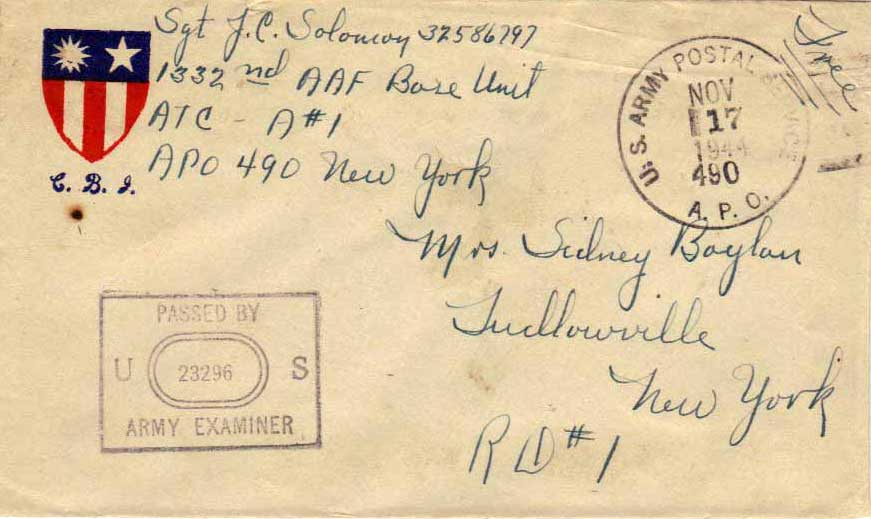 Sgt J.C. Solomon 32586797
1332nd AAF Base Unit
ATC - A#1
APO 490 New York
C. B. I.
U. S. ARMY POSTAL SERVICE
NOV
17
1944
490
A. P. O.
Free
Mrs. Sidney Boylan
Ludlowville
New York
RD#1
PASSED BY
U 23296 S
ARMY EXAMINER